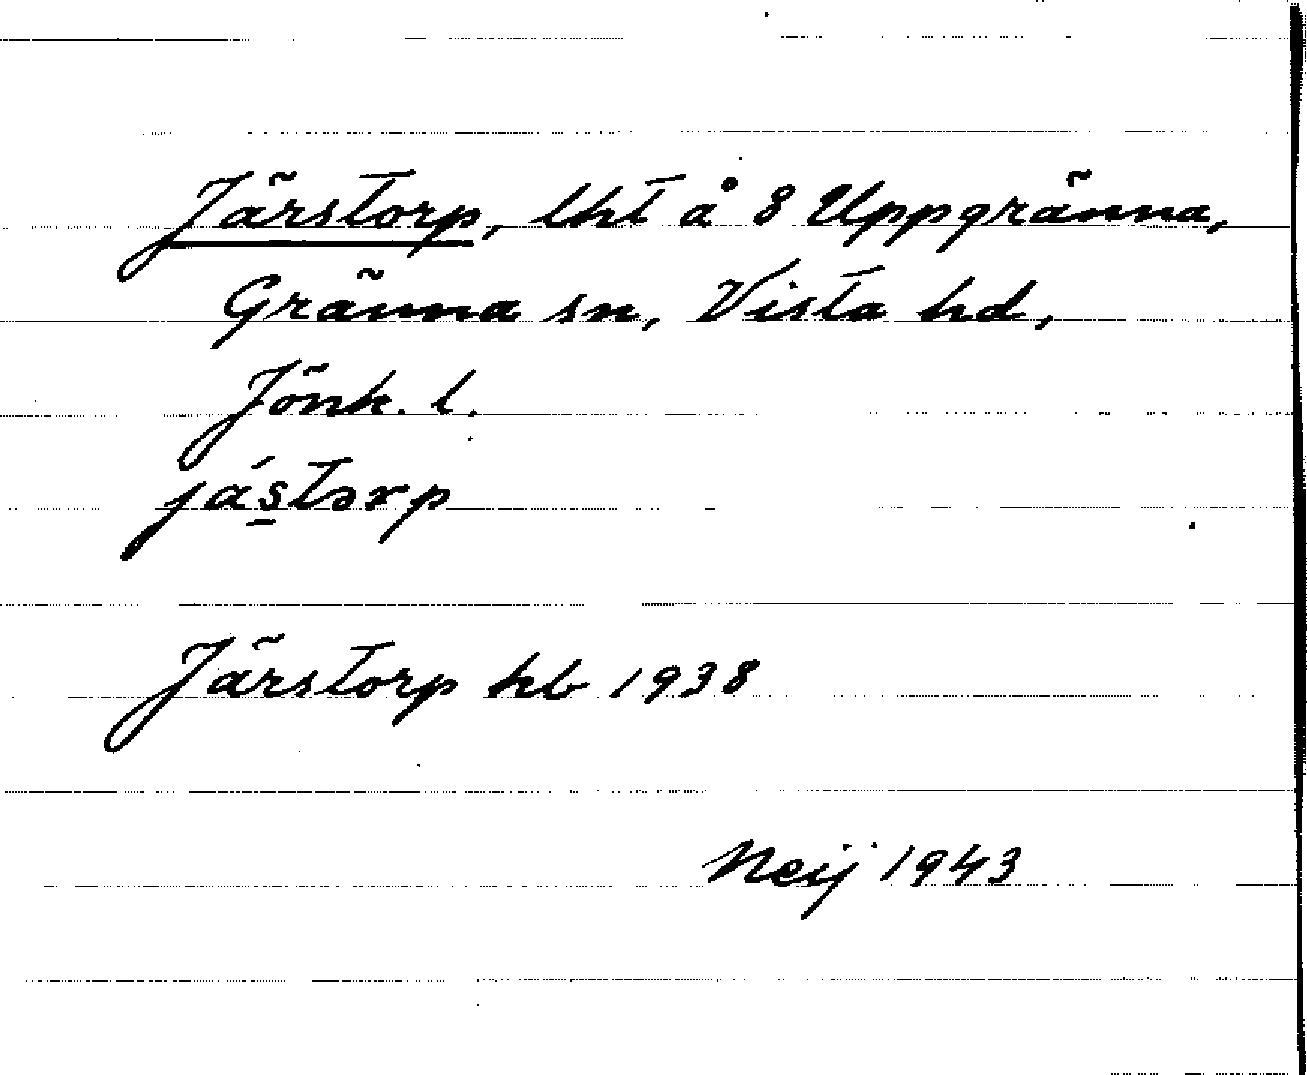 Järstorp, lht å 8 Uppgränna,
Gränna sn, Vista hd,
Jönk. l.
já̱stərp
Järstorp hb 1938
Neij 1943